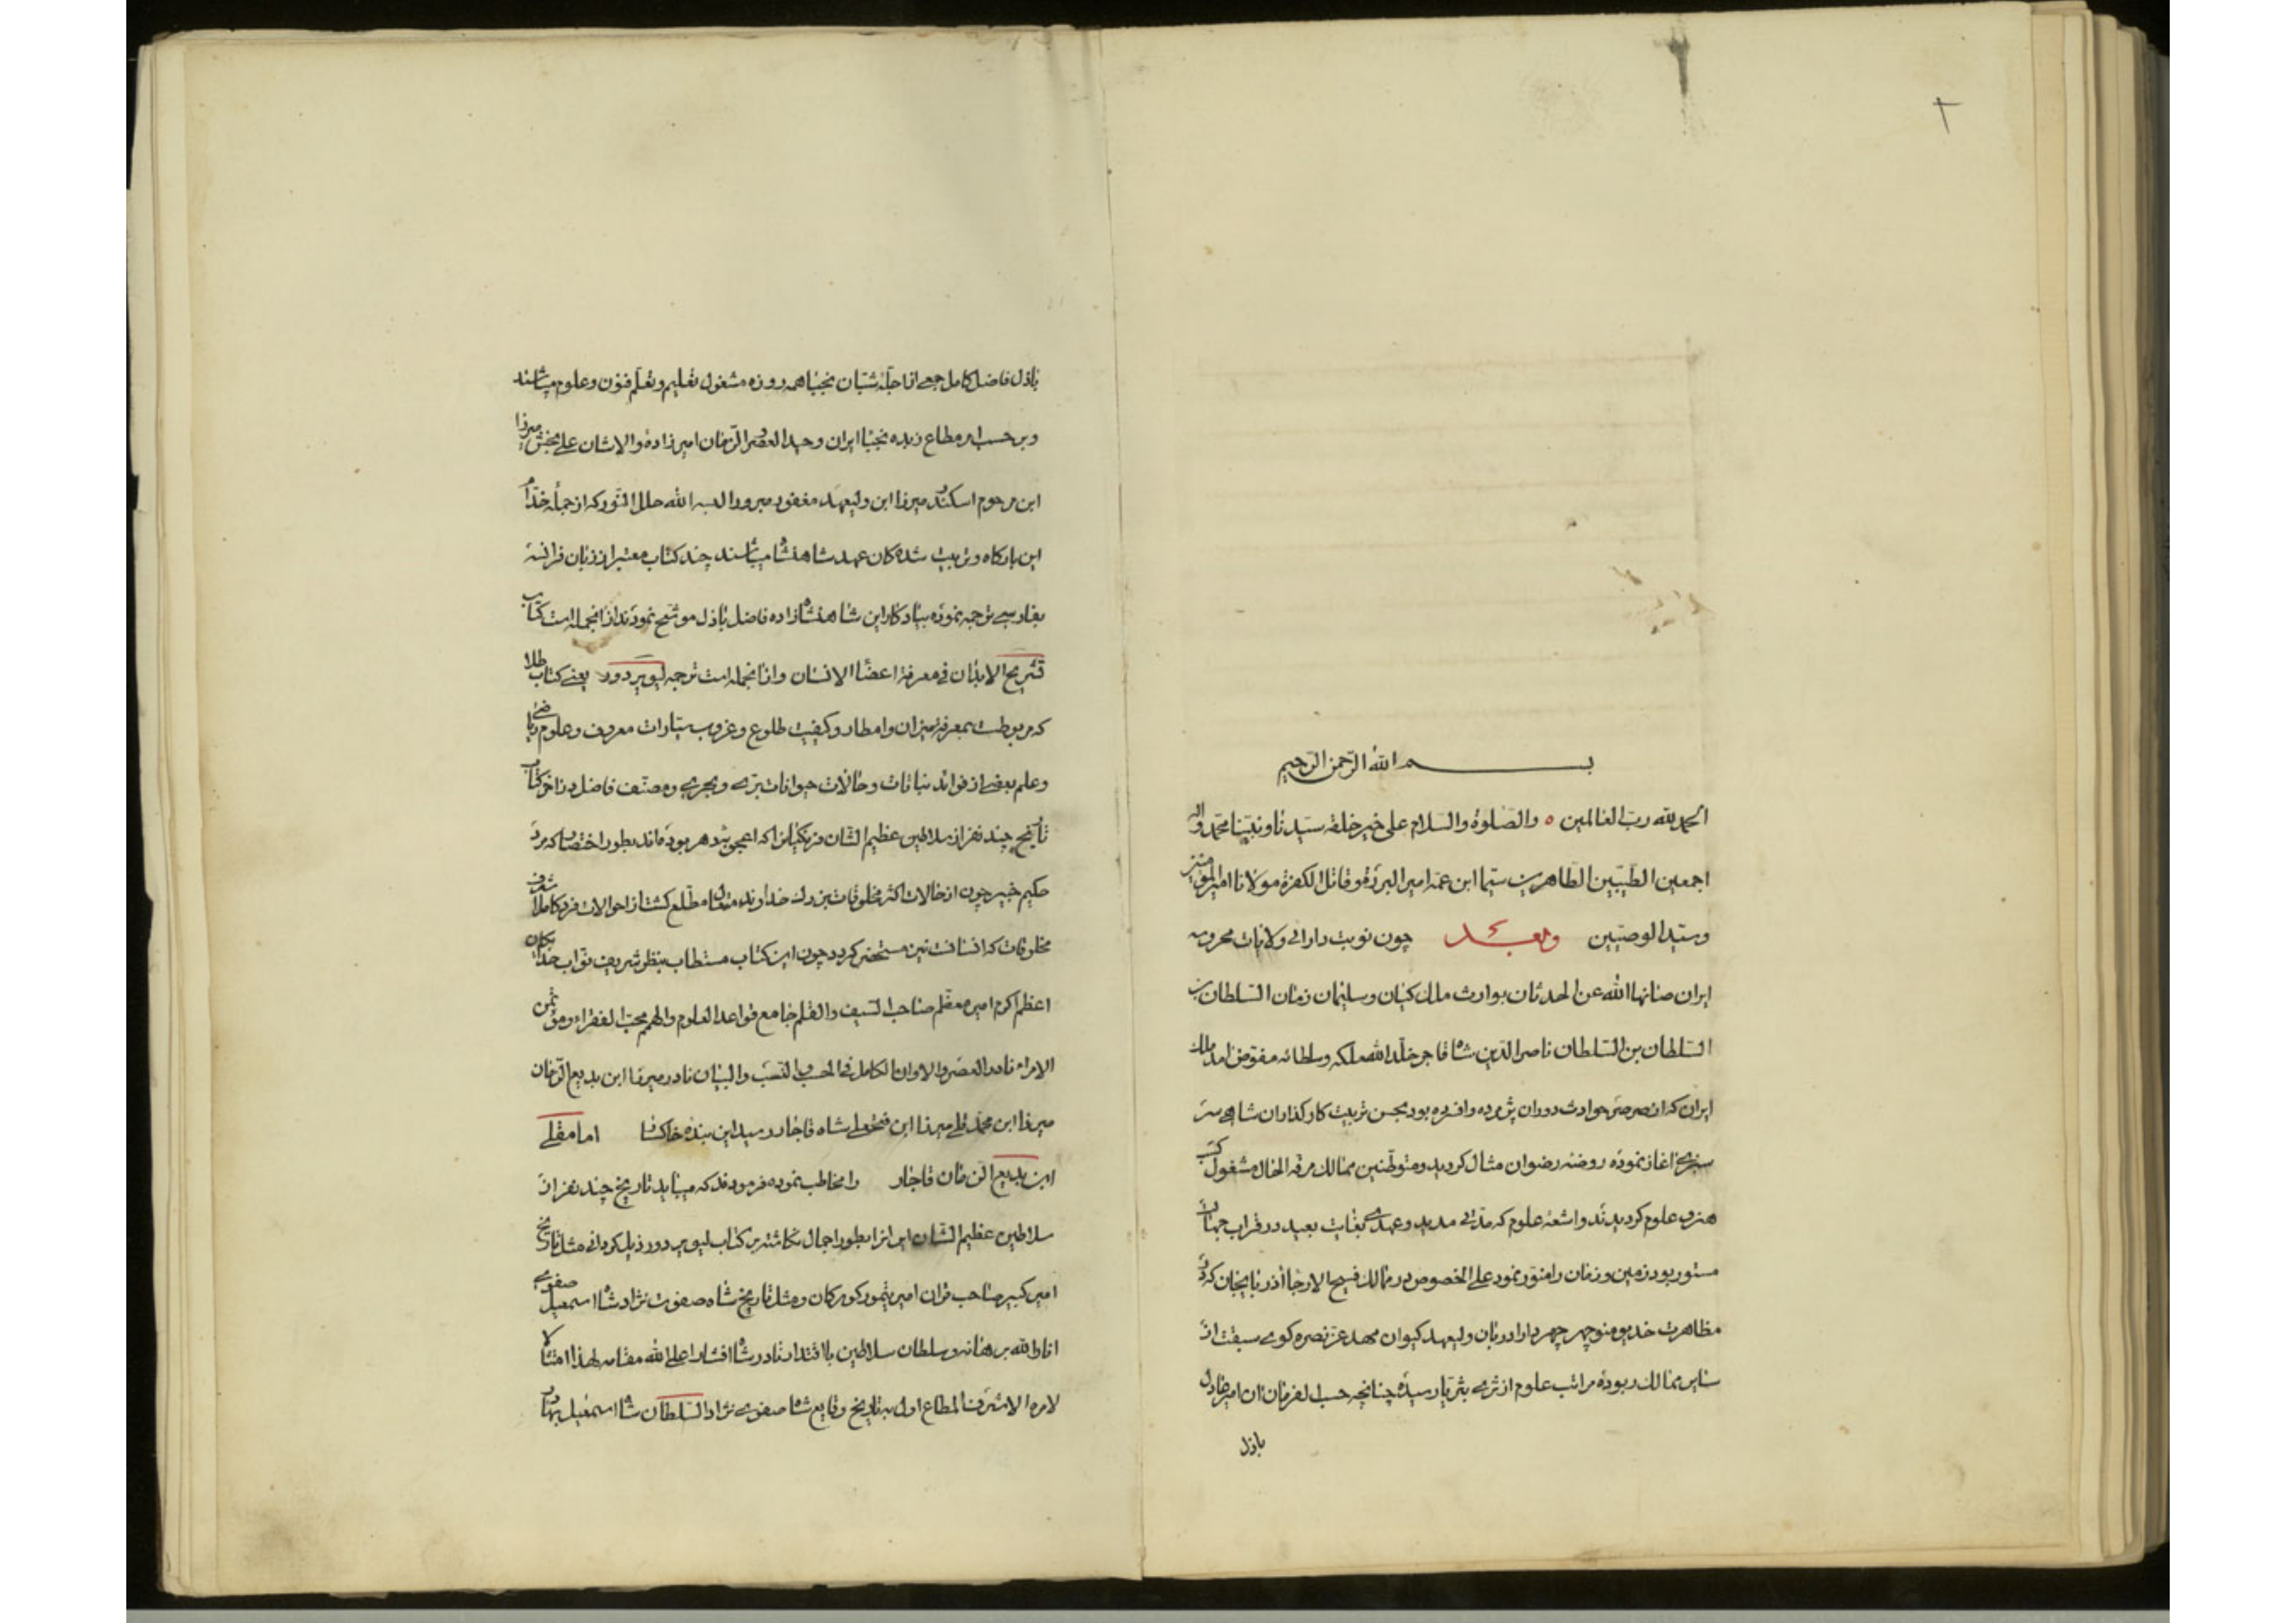 بسم الله الرحمن الرحیم
الحمد لله رب العالمین ه والصلوة والسلام علی خیر خلقه سیدنا ونبینا محمد واله
اجمعین الطیبین الطاهرین سیما ابن عمه امیر البررة وقاتل الکفرة مولانا امیر المؤمنین
وسید الوصیین وبعد چون نوبت دارائی ولایات محروسه
ایران صانها الله عن الحدثان بوارث ملک کیان وسلیمان زمان السلطان بن
السلطان بن السلطان ناصر الدین شاه قاجار خلد الله ملکه وسلطانه مفوض امد ملک
ایران که از صرصر حوادث دوران پژمرده وافسرده بود بحسن تربیت کارگذاران شاهی سر
سبزی اغاز نموده روضه رضوان مثال کردید ومتوطنین ممالک مرفه الحال مشغول کسب
هنر و علوم کردیدند واشعه علوم که مدتی مدید وعهدی بغایت بعید در قراب جهان
مستور بود زمین وزمان را منور نمود علی الخصوص در ممالک فسیح الارجا اذربایجان که در
مظاهرت خدیو منوچهر چهر دارا دربان ولیعهد کیوان مهد عز نصره کوی سبقت از
سایر ممالک ربوده مراتب علوم از ثری بثریا رسیده چنانچه حسب الفرمان ان امیر عادل
باذل
باذل فاضل کامل جمعی از اجله شبان نجبا همه روزه مشغول تعلیم وتعلم فنون وعلوم میباشند
وبر حسب امر مطاع زبده نجبا ایران وحید العصر والزمان امیرزاده والاشان علی بخش میرزا
ابن مرحوم اسکندر میرزا ابن ولیعهد مغفور مبرور البسه الله حلل النور که از جمله خدام
این بارکاه وتربیت شده کان عهد شاهنشاه میباشند چند کتاب معتبر از زبان فرانسه
بفارسی ترجمه نموده بیادکار این شاهنشاه زاده فاضل باذل موشح نمودند از انجمله است کتاب
تشریح الابدان فی معرفة اعضا الانسان وازانجمله است ترجمه لیویر دور یعنی کتاب طلا
که مربوطست بمعرفة میزان وامطار وکیفیت طلوع وغروب سیارات معروف وعلوم ریاضی
وعلم بعضی از فوائد نباتات وحالات حیوانات بری وبحری ومصنف فاضل در اخر کتاب
تاریخ چند نفر از سلاطین عظیم الشان فرنکیانرا که اعجوبه دهر بوده‌اند بطور اختصار که مرد
حکیم خبیر چون از حالات اکثر مخلوقات بزرک خداوند متعال مطلع کشت از احوالات فرد کامل اشرف
مخلوقات که انسانست نیز مستحضر کردد چون این کتاب مستطاب بنظر شریف نواب خدایگان
اعظم اکرم امیر معظم صاحب السیف والقلم جامع قواعد العلوم والهمم محب الفقراء ومؤتمن
الامراء نادر العصر والاوان الکامل فی الحسب و النسب والبیان نادر میرزا ابن بدیع الزمان
میرزا ابن محمد قلی میرزا ابن فتحعلی شاه قاجار رسید این بنده خاکسار امامقلی
ابن بدیع الزمان قاجار را مخاطب نموده فرمودند که میباید تاریخ چند نفر از
سلاطین عظیم الشان ایرانرا بطور اجمال نکاشته بر کتاب لیویر دور ذیل کردانی مثل تاریخ
امیر کبیر صاحب قران امیر تیمور کورکان ومثل تاریخ شاه صفوت نژاد شاه اسمعیل صفوی
انار الله برهانه وسلطان سلاطین بااقتدار نادر شاه افشار اعلی الله مقامه لهذا امتثالا
لامره الاشرف المطاع اول به تاریخ وقایع شاه صفوی نژاد السلطان شاه اسمعیل بهادر